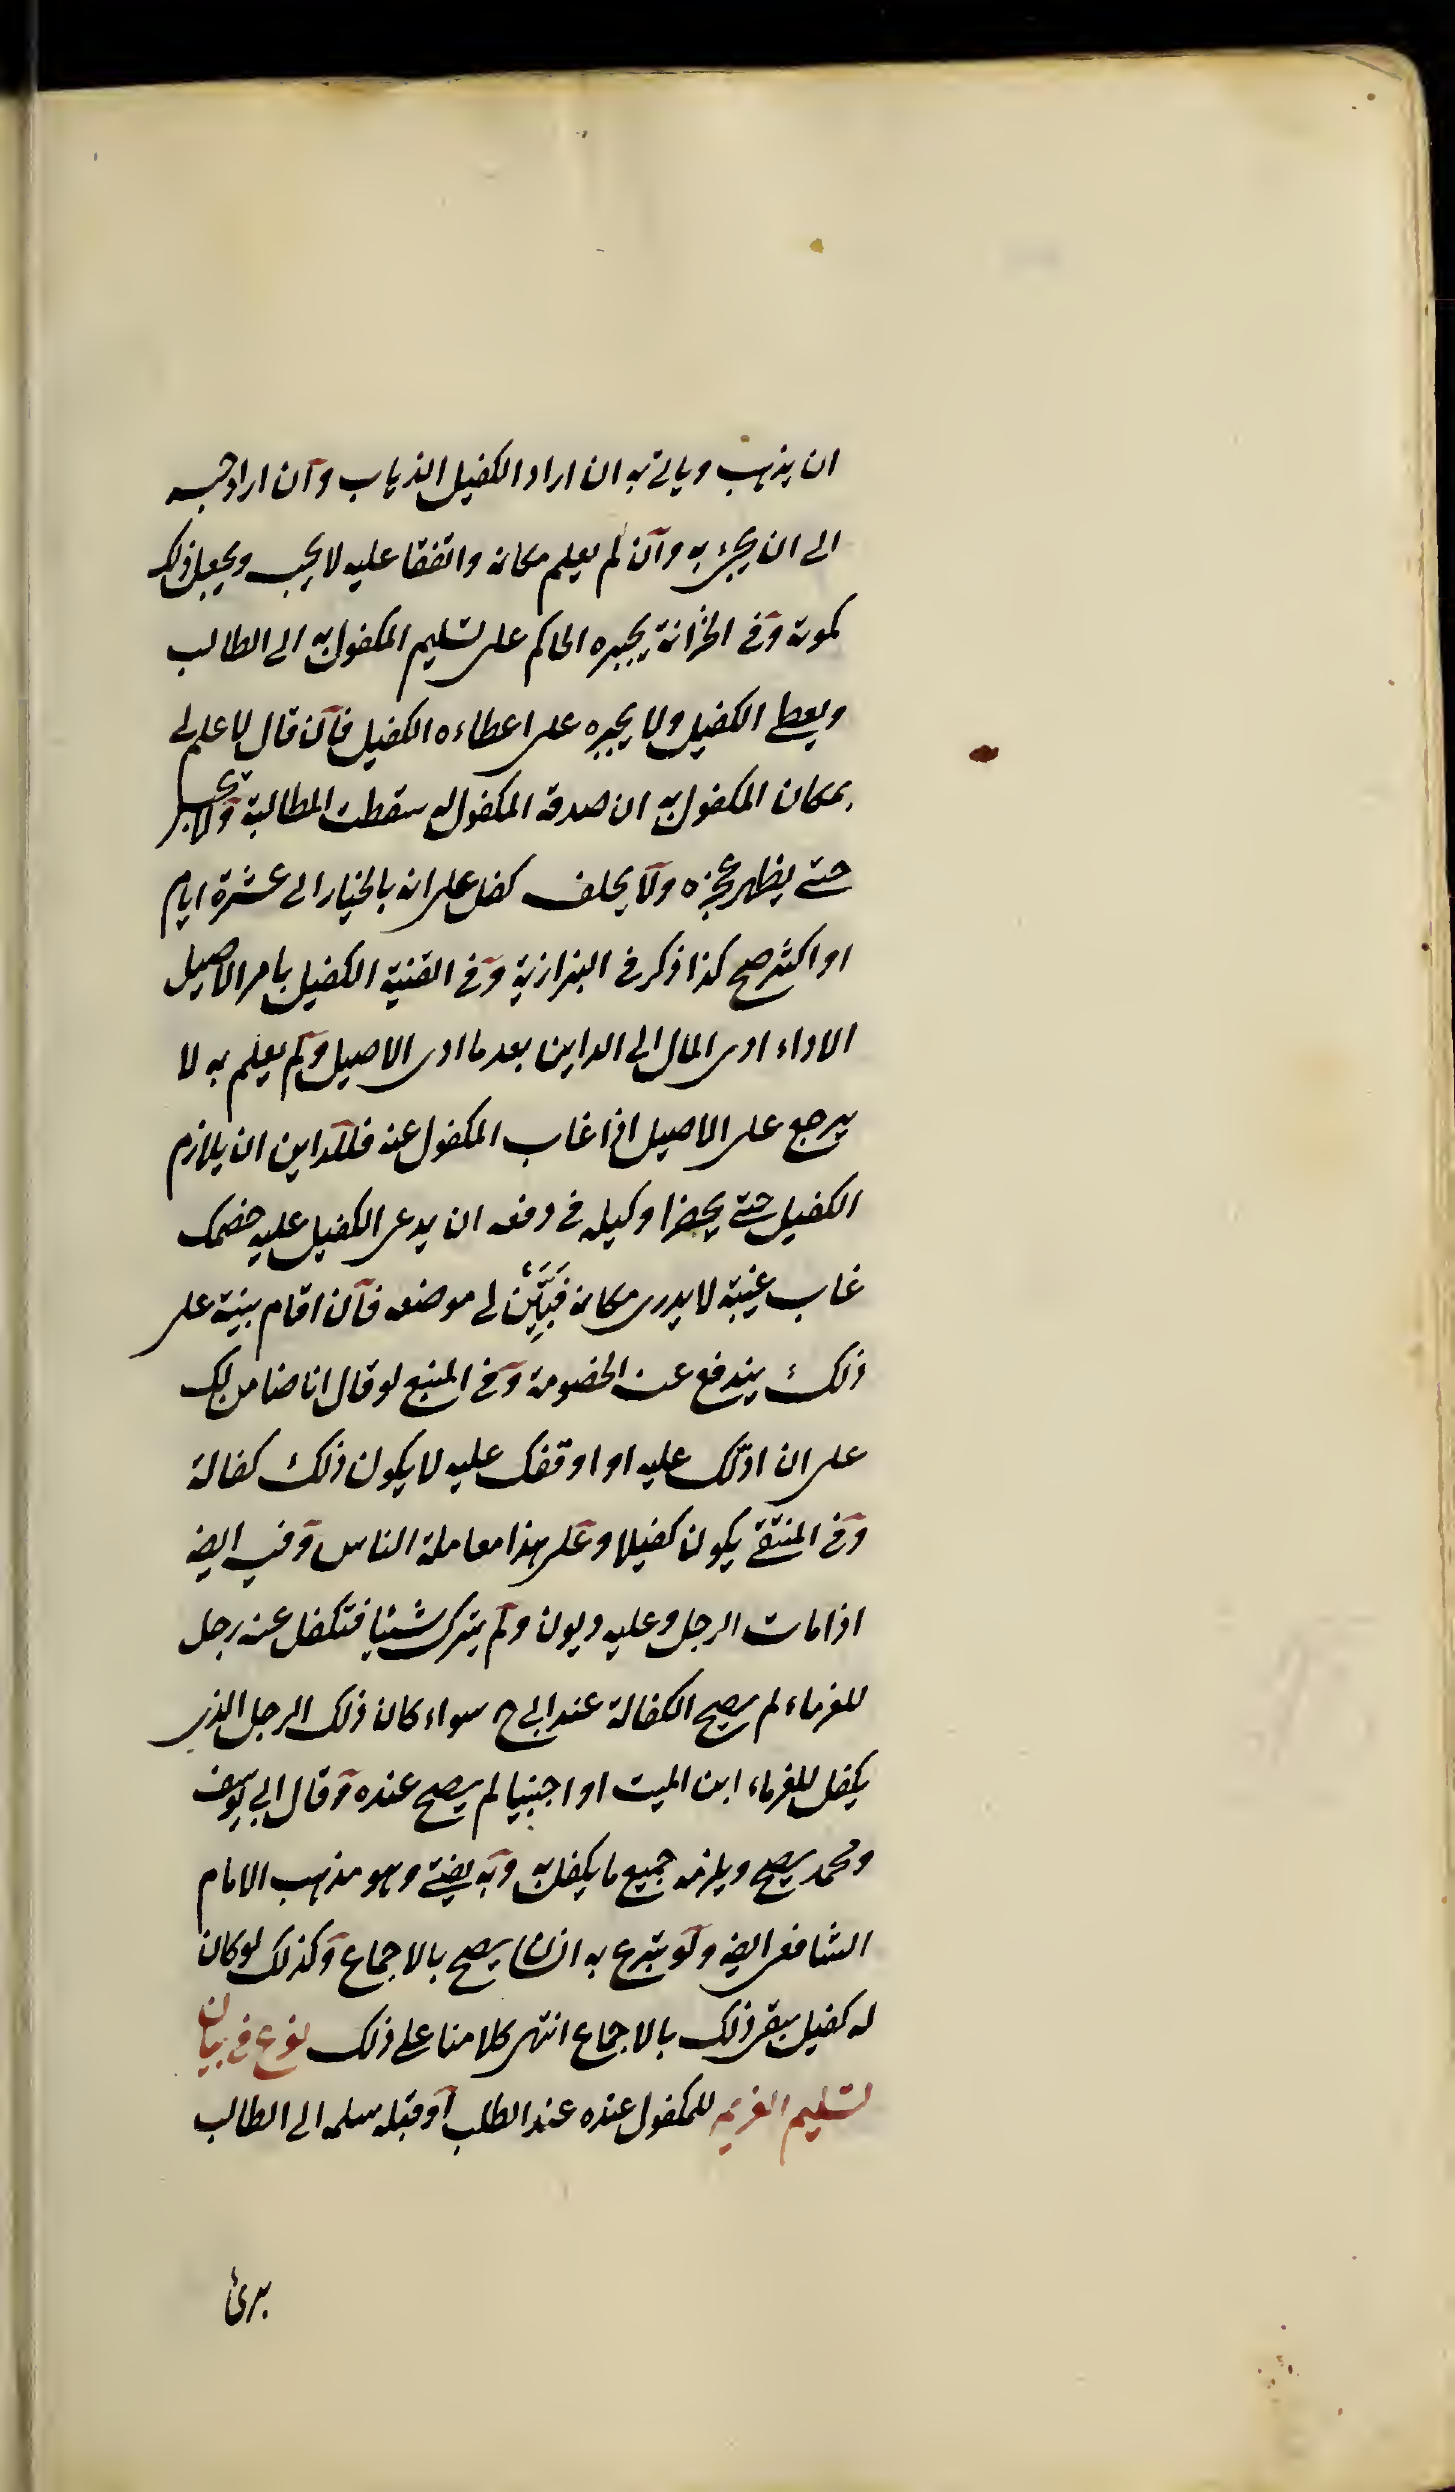 ان يذهب وياتي به ان اراد الكفيل الذهاب وان اراد حبسه
الى ان يجئ به وان لم يعلم مكانه واتفقا عليه لا يجب ويجعل ذلك
كموته وفي الخزانة يجبره الحاكم على تسليم المكفول به الى الطالب
ويعطى الكفيل ولا يجبره على اعطاءه الكفيل فان قال لا علم لي
بمكان المكفول به ان صدقه المكفول له سقطت المطالبة ولا يجبر
حتى يظهر عجزه ولا يحلف كفل على انه بالخيار الى عشرة ايام
او اكثر صح كذا ذكر في البزازية وفي القنية الكفيل بامر الاصيل
الاداء ادى المال الى الداين بعد ما ادى الاصيل ولم يعلم به لا
يرجع على الاصيل اذا غاب المكفول عنه فللداين ان يلازم
الكفيل حتى يحضرا وكيله في دفعه ان يدعى الكفيل عليه خصمك
غاب غيبة لا يدرى مكانه فَبَيِّنْ لي موضعه فان اقام بينة على
ذلك يندفع عنه الخصومة وفي المنبع لو قال انا ضامن لك
على ان ادلك عليه او اوقفك عليه لا يكون ذلك كفالة
وفي المنتقى يكون كفيلا وعلى هذا معاملة الناس وفيه ايضه
اذا مات الرجل وعليه ديون ولم يترك شيئا فتكفل عنه رجل
للغرماء لم يصح الكفالة عند ابي ح سواء كان ذلك الرجل الذى
يكفل للغرماء ابن الميت او اجنبيا لم يصح عنده وقال ابي يوسف
ومحمد يصح ويلزمه جميع ما يكفل به وبه يفتى وهو مذهب الامام
الشافعى ايضه ولو تبرع به انسان يصح بالاجماع وكذلك لو كان
له كفيل يبقى ذلك بالاجماع انتهى كلامنا على ذلك نوع في بيان
تسليم الغريم للمكفول عنده عند الطلب او قبله سلمه الى الطالب
برئ